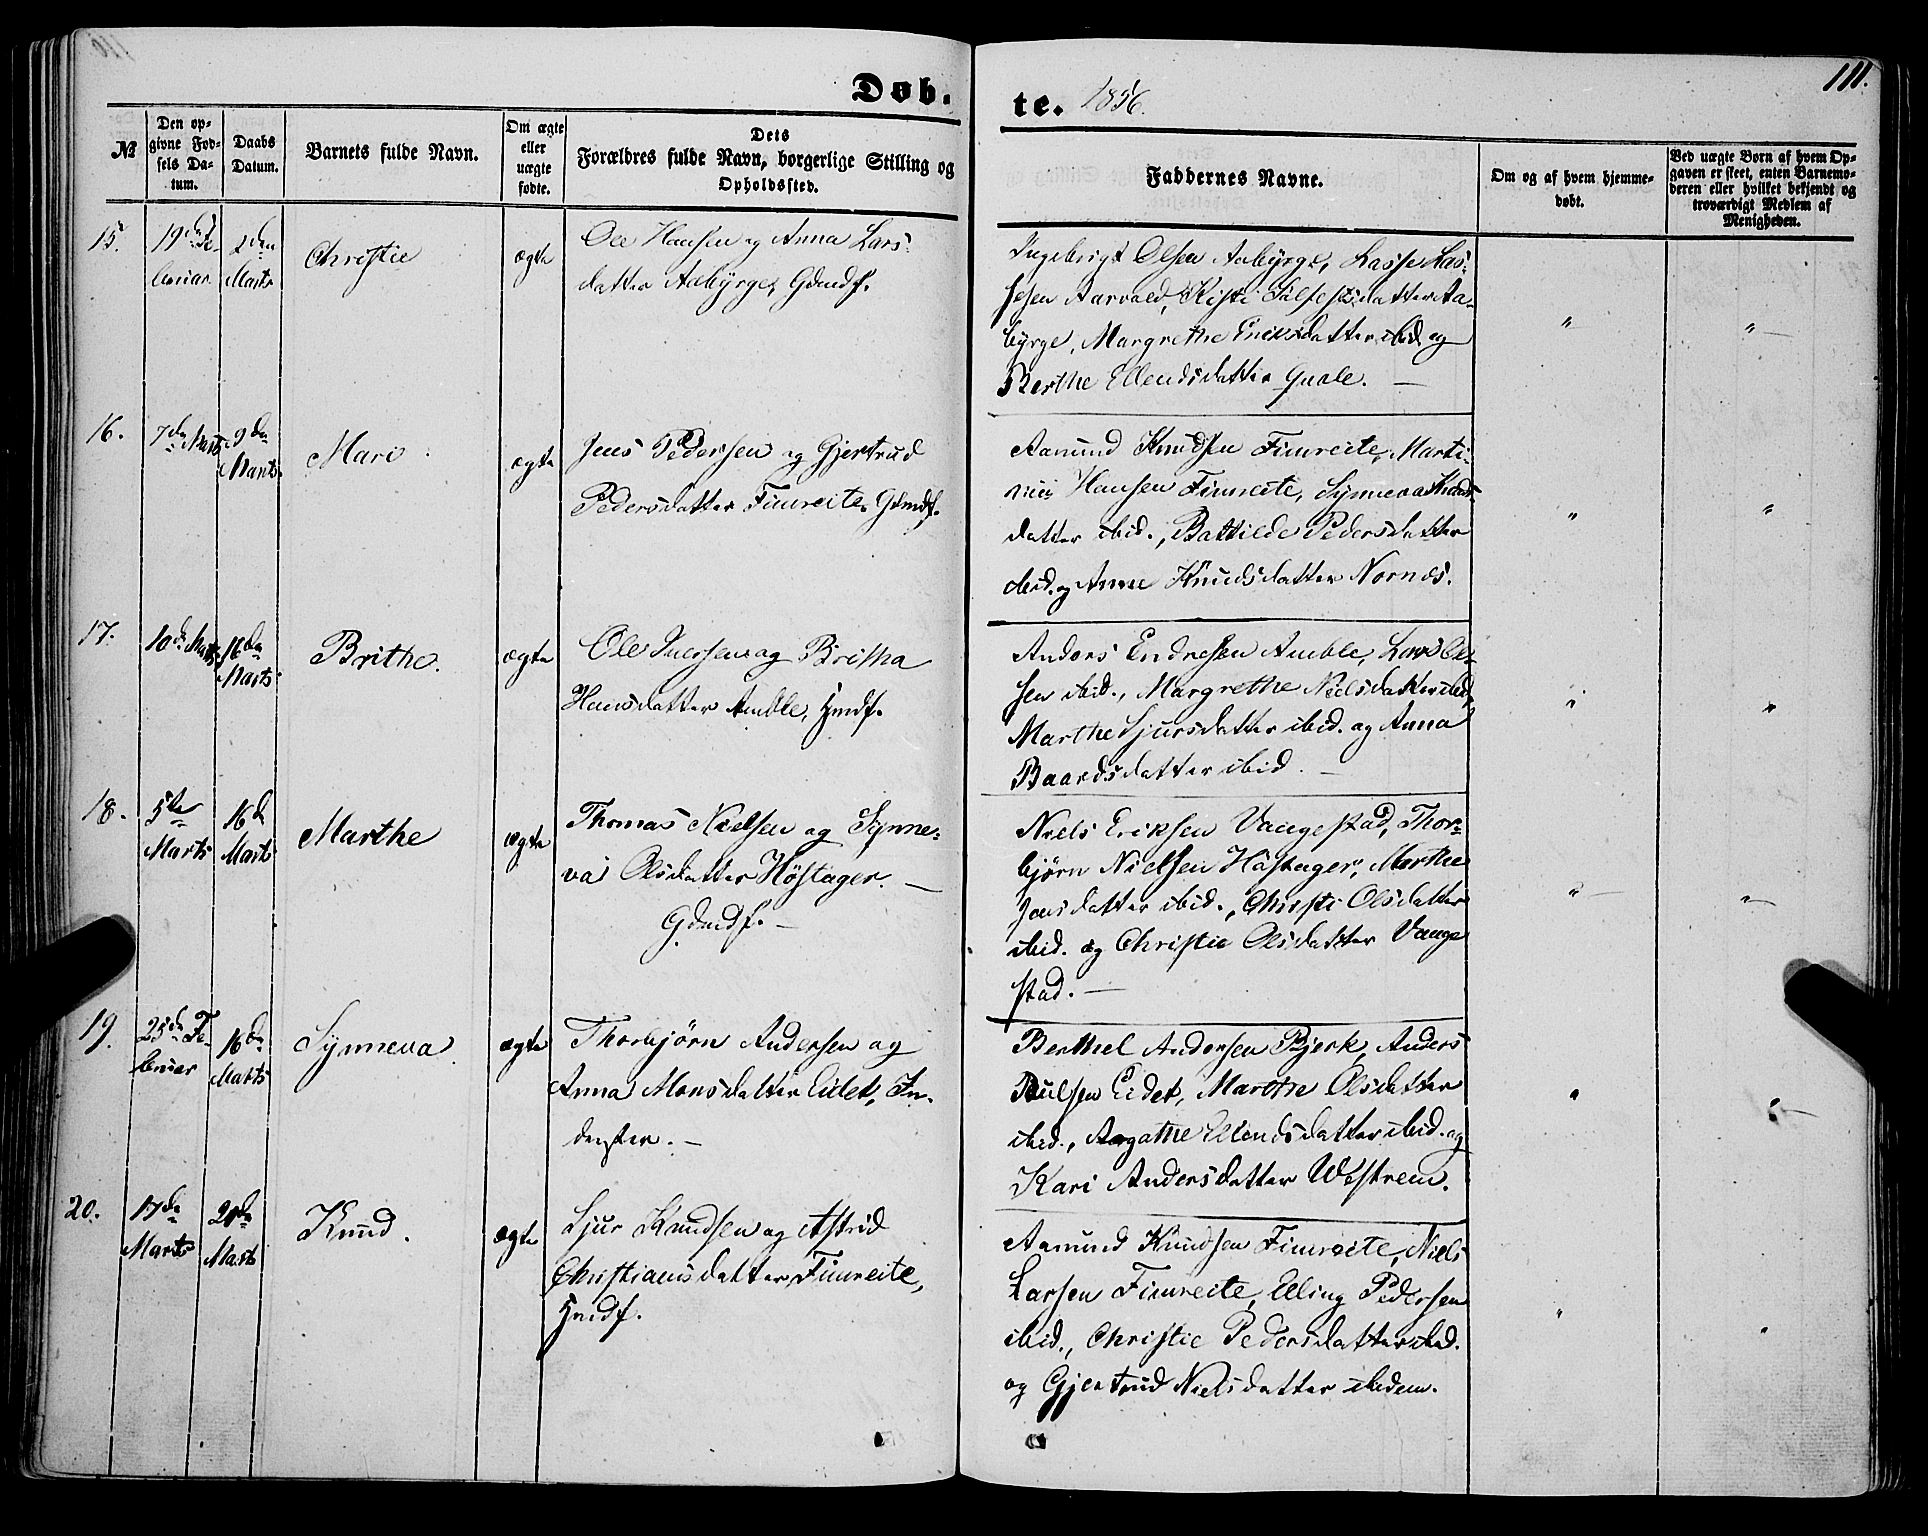 111.
Døb. te. 1856.
№
Den op-
givne Fød-
sels Da-
tum.
Daabs
Datum.
Barnets fulde Navn.
Om ægte
eller
uægte
fødte.
Dets
Forældres fulde Navn, borgerlige Stilling og
Opholdssted.
Faddernes Navne.
Om og af hvem hjemme-
døbt.
Ved uægte Børn af hvem Op-
gaven er skeet, enten Barnemo-
deren eller hvilket bekjendt og
troværdigt Medlem af
Menigheden.
15.
19de Fe-
bruar
2den
Marts
Christie
ægte
Ole Hansen og Anna Lars-
datter Aabyrge, Gdmdf.
Ingebrigt Olsen Aabyrge, Lasse Las-
sesen Aarvold, Kisti datter Aa-
byrge, Margrethe Eriksdatter ibid og
Berthe Ellendsdatter Quale. —
"
" —
16.
7de Marts
9de
Marts
Mari
ægte
Jens Pedersen og Gjertrud
Pedersdatter Fimreite, Gdmdf.
Aamund Knudsen Fimreite, Marti-
nus Hansen Fimreite, Synneva Knuds-
datter ibid., Battilde Pedersdatter
ibid. og Anne Knudsdatter Nornes.
"
"
17.
10de Marts
16de
Marts
Brithe.
ægte
Ole Iversen og Britha
Hansdatter Amble, Hmdf.
Anders Endresen Amble, Lars Ol-
sen ibid., Margrethe Nielsdatter ibid,
Marthe Sjursdatter ibid. og Anna
Baardsdatter ibid. —
"
"
18.
5te
Marts
16d
Marts
Marthe
ægte
Thomas Nielsen og Synne-
va Olsdatter Høstager. —
Gdmdf. —
Niels Eriksen Vangestad, Thor-
bjørn Nielsen Høstager, Marthe
Jensdatter ibid., Christi Olsdatter
ibid. og Christie Olsdatter Vange
stad. —
" —
" —
19.
25de Fe-
bruar
16de
Marts
Synneva
ægte
Thorbjørn Andersen og
Anna Monsdatter Eidet, In-
derster. —
Berthel Andersen Bjerk, Anders
Eidet, Marthe Olsdatter
ibid., Aagathe Ellendsdatter ibid. og
Kari Andersdatter Westrem.
"
" —
20.
17de
Marts
20de
Marts
Knud.
ægte
Sjur Knudsen og Astrid
Christiansdatter Fimreite,
Hmdf.
Aamund Knudsen Fimreite, Niels
Larsen Fimreite, Elling Pedersen
ibid., Christie Pedersdatter ibid.
og Gjertrud Nielsdatter ibidem.
"
"